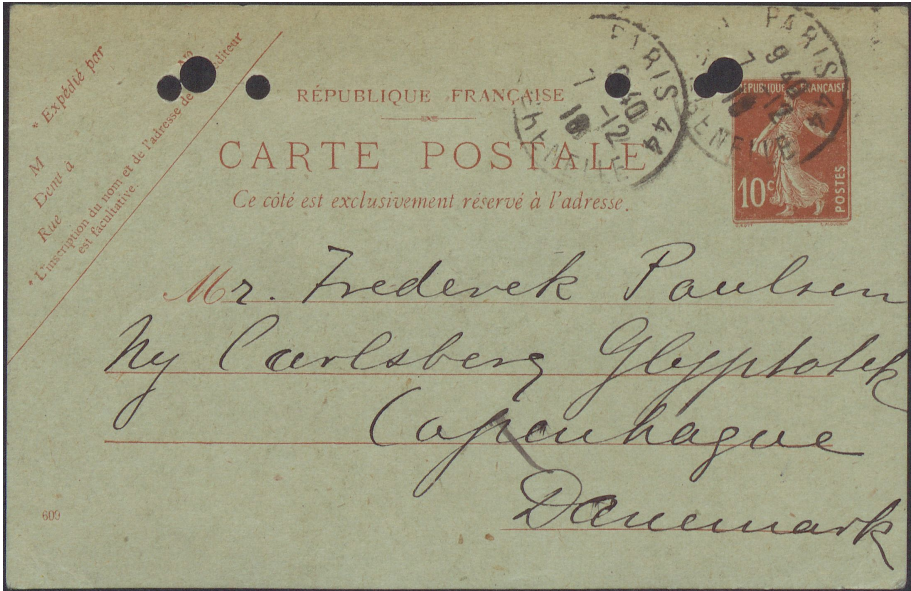 * Expédié par
M
Demt à
Rue Nº
* L'inscription du nom et de l'adresse de l'expéditeur
est facultative.
RÉPUBLIQUE FRANÇAISE
CARTE POSTALE
Ce côté est exclusivement réservé à l'adresse.
PARIS 44
9 40
7 -12
PARIS 44
9 40
7 -12
RÉPUBLIQUE FRANÇAISE
10c
POSTES
Mr. Frederek Poulsen
Ny Carlsberg Glyptotek
Copenhague
Danemark
609